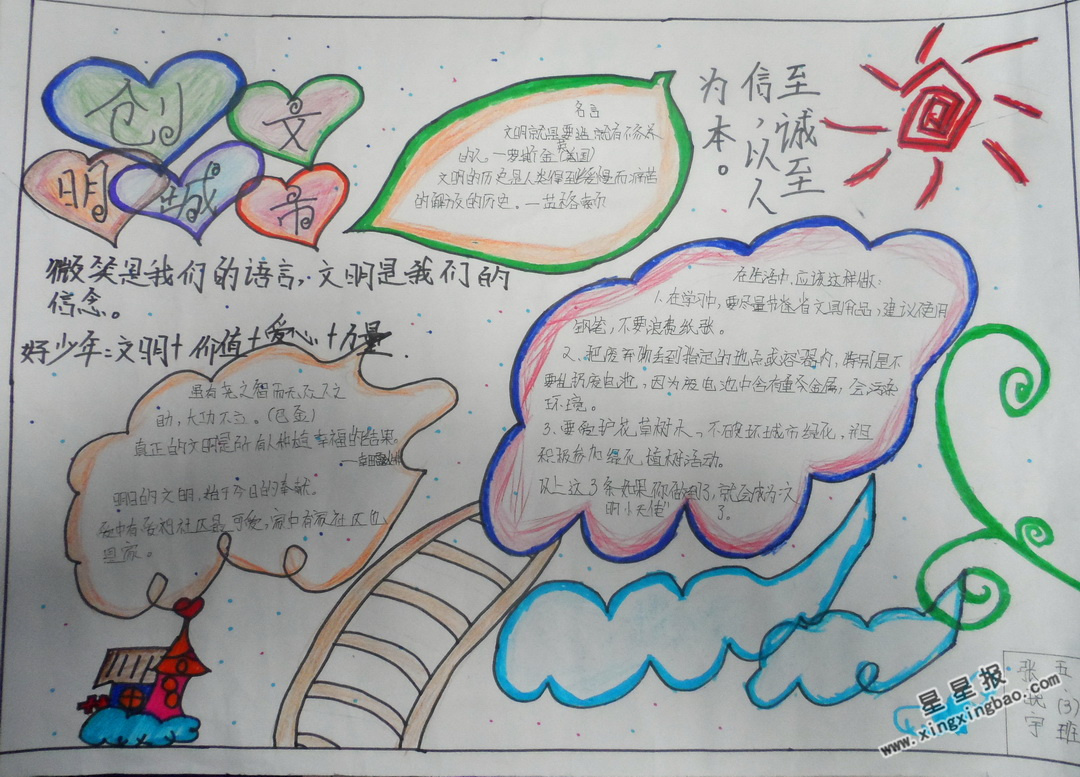 创文
明城市
微笑是我们的语言,文明是我们的
信念。
好少年=文明+价值+爱心+力量
名言
文明就是要造就有修养
的人。—罗斯金(英国)
文明的历史是人类得到缓慢而痛苦
的解放的历史。
至诚至
信,以人
为本。
在生活中,应该这样做:
1.在学习中,要尽量节省文具用品,建议使用
钢笔,不要浪费纸张。
2、把废弃物丢到指定的地点或容器内,特别是不
要乱扔废电池,因为废电池中含有重金属,会污染
环境。
3、要爱护花草树木、不破坏城市绿化,并且
积极参加绿化植树活动。
以上这3条如果你做到了,就会成为文
明小天使了。
虽有尧之智而无众人之
助,大功不立。
真正的文明是所有人种植幸福的结果。
明日的文明,始于今日的奉献。
社区最可爱,家中有家社区也
是家。
五(3)班
星星报
www.xingxingbao.com